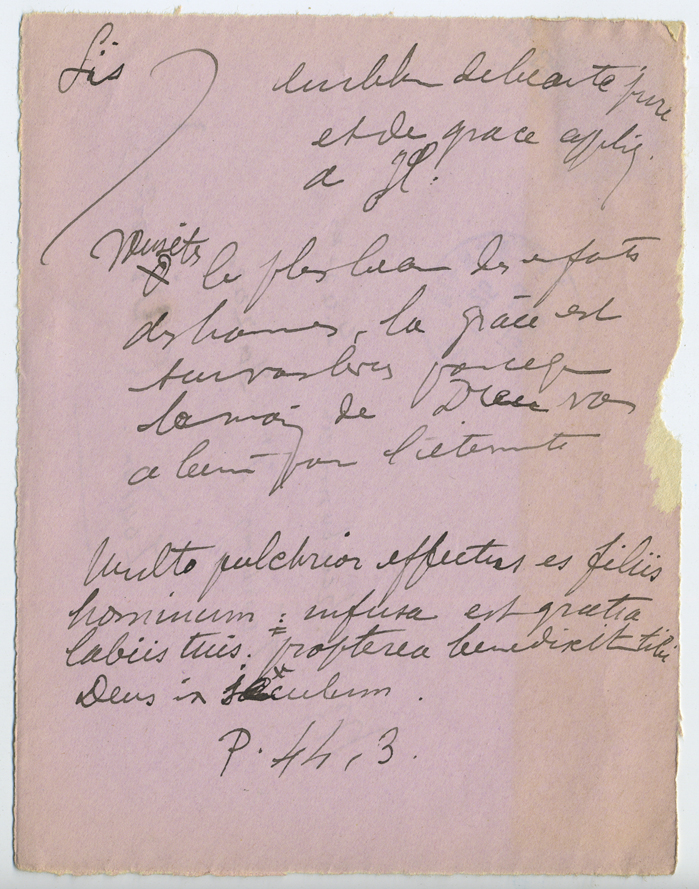 Lis
emblem de beauté pure
et de grace appliq.
a JC.
Vous êtes le plus beau des enfants
des hommes, la grâce est
sur vos lèvres parceque
la main de Dieu vous
a béni pour l'éternité
Multo pulchrior effectus es filiis
hominum : infusa est gratia
labiis tuis. propterea benedixit tibi
Deus in sæculum.
P. 44, 3.